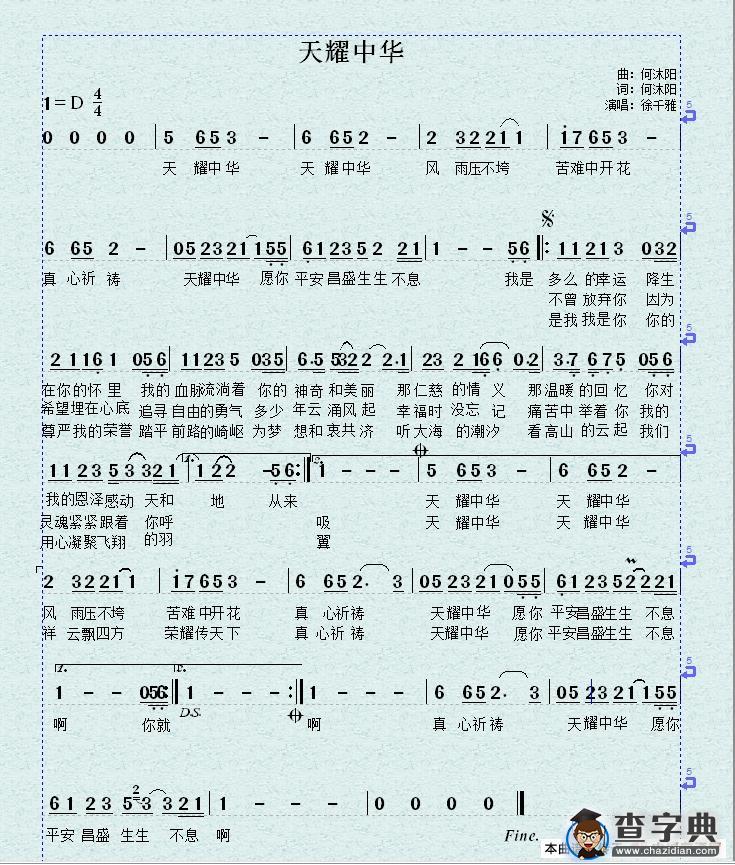 天耀中华
曲：何沐阳
词：何沐阳
演唱：徐千雅
1=D 4/4
0 0 0 0 | 5 6 5 3 - | 6 6 5 2 - | 2 3 2 2 1 1 | 1 7 6 5 3 -
天 耀中华 天 耀中华 风 雨压不垮 苦难中开花
6 6 5 2 - | 0 5 2 3 2 1 1 5 5 | 6 1 2 3 5 2 2 1 | 1 - - 5 6 |: 1 1 2 1 3 0 3 2
真 心祈 祷 天耀中华 愿你 平安昌盛生生 不息 我是 多么 的幸运 降生
不曾 放弃你 因为
是我 我是你 你的
2 1 1 6 1 0 5 6 | 1 1 2 3 5 0 3 5 | 6 5 5 3 2 2 2 1 | 2 3 2 1 6 6 0 2 | 3 7 6 7 5 0 5 6
在你的怀 里 我的 血脉流淌着 你的 神奇 和美丽 那仁慈 的情 义 那温暖 的回 忆 你对
希望埋在心底 追寻 自由的勇气 多少 年云 涌风起 幸福时 没忘 记 痛苦中 举着 你 我的
尊严我的荣誉 踏平 前路的崎岖 为梦 想和 衷共济 听大海 的潮汐 看高山 的云起 我们
1 1 2 3 5 3 3 2 1 | 1 2 2 - 5 6 :| 1 - - - | 5 6 5 3 - | 6 6 5 2 -
我的恩泽感动 天和 地 从来 天 耀中华 天 耀中华
灵魂紧紧跟着 你呼 吸 天 耀中华 天 耀中华
用心凝聚飞翔 的羽 翼
2 3 2 2 1 1 | 1 7 6 5 3 - | 6 6 5 2 . 3 | 0 5 2 3 2 1 0 5 5 | 6 1 2 3 5 2 2 2 1
风 雨压不垮 苦难中开花 真 心祈祷 天耀中华 愿你 平安昌盛生生 不息
祥 云飘四方 荣耀传天下 真 心祈祷 天耀中华 愿你 平安昌盛生生 不息
1. 2.
1 - - 0 5 6 :| 1 - - - :| 1 - - - | 6 6 5 2 . 3 | 0 5 2 3 2 1 1 5 5
D.S.
啊 你就 啊 真 心祈祷 天耀中华 愿你
6 1 2 3 5 3 3 2 1 | 1 - - - | 0 0 0 0
平安 昌盛 生生 不息 啊
Fine.
本曲
查字典
www.chazidian.com